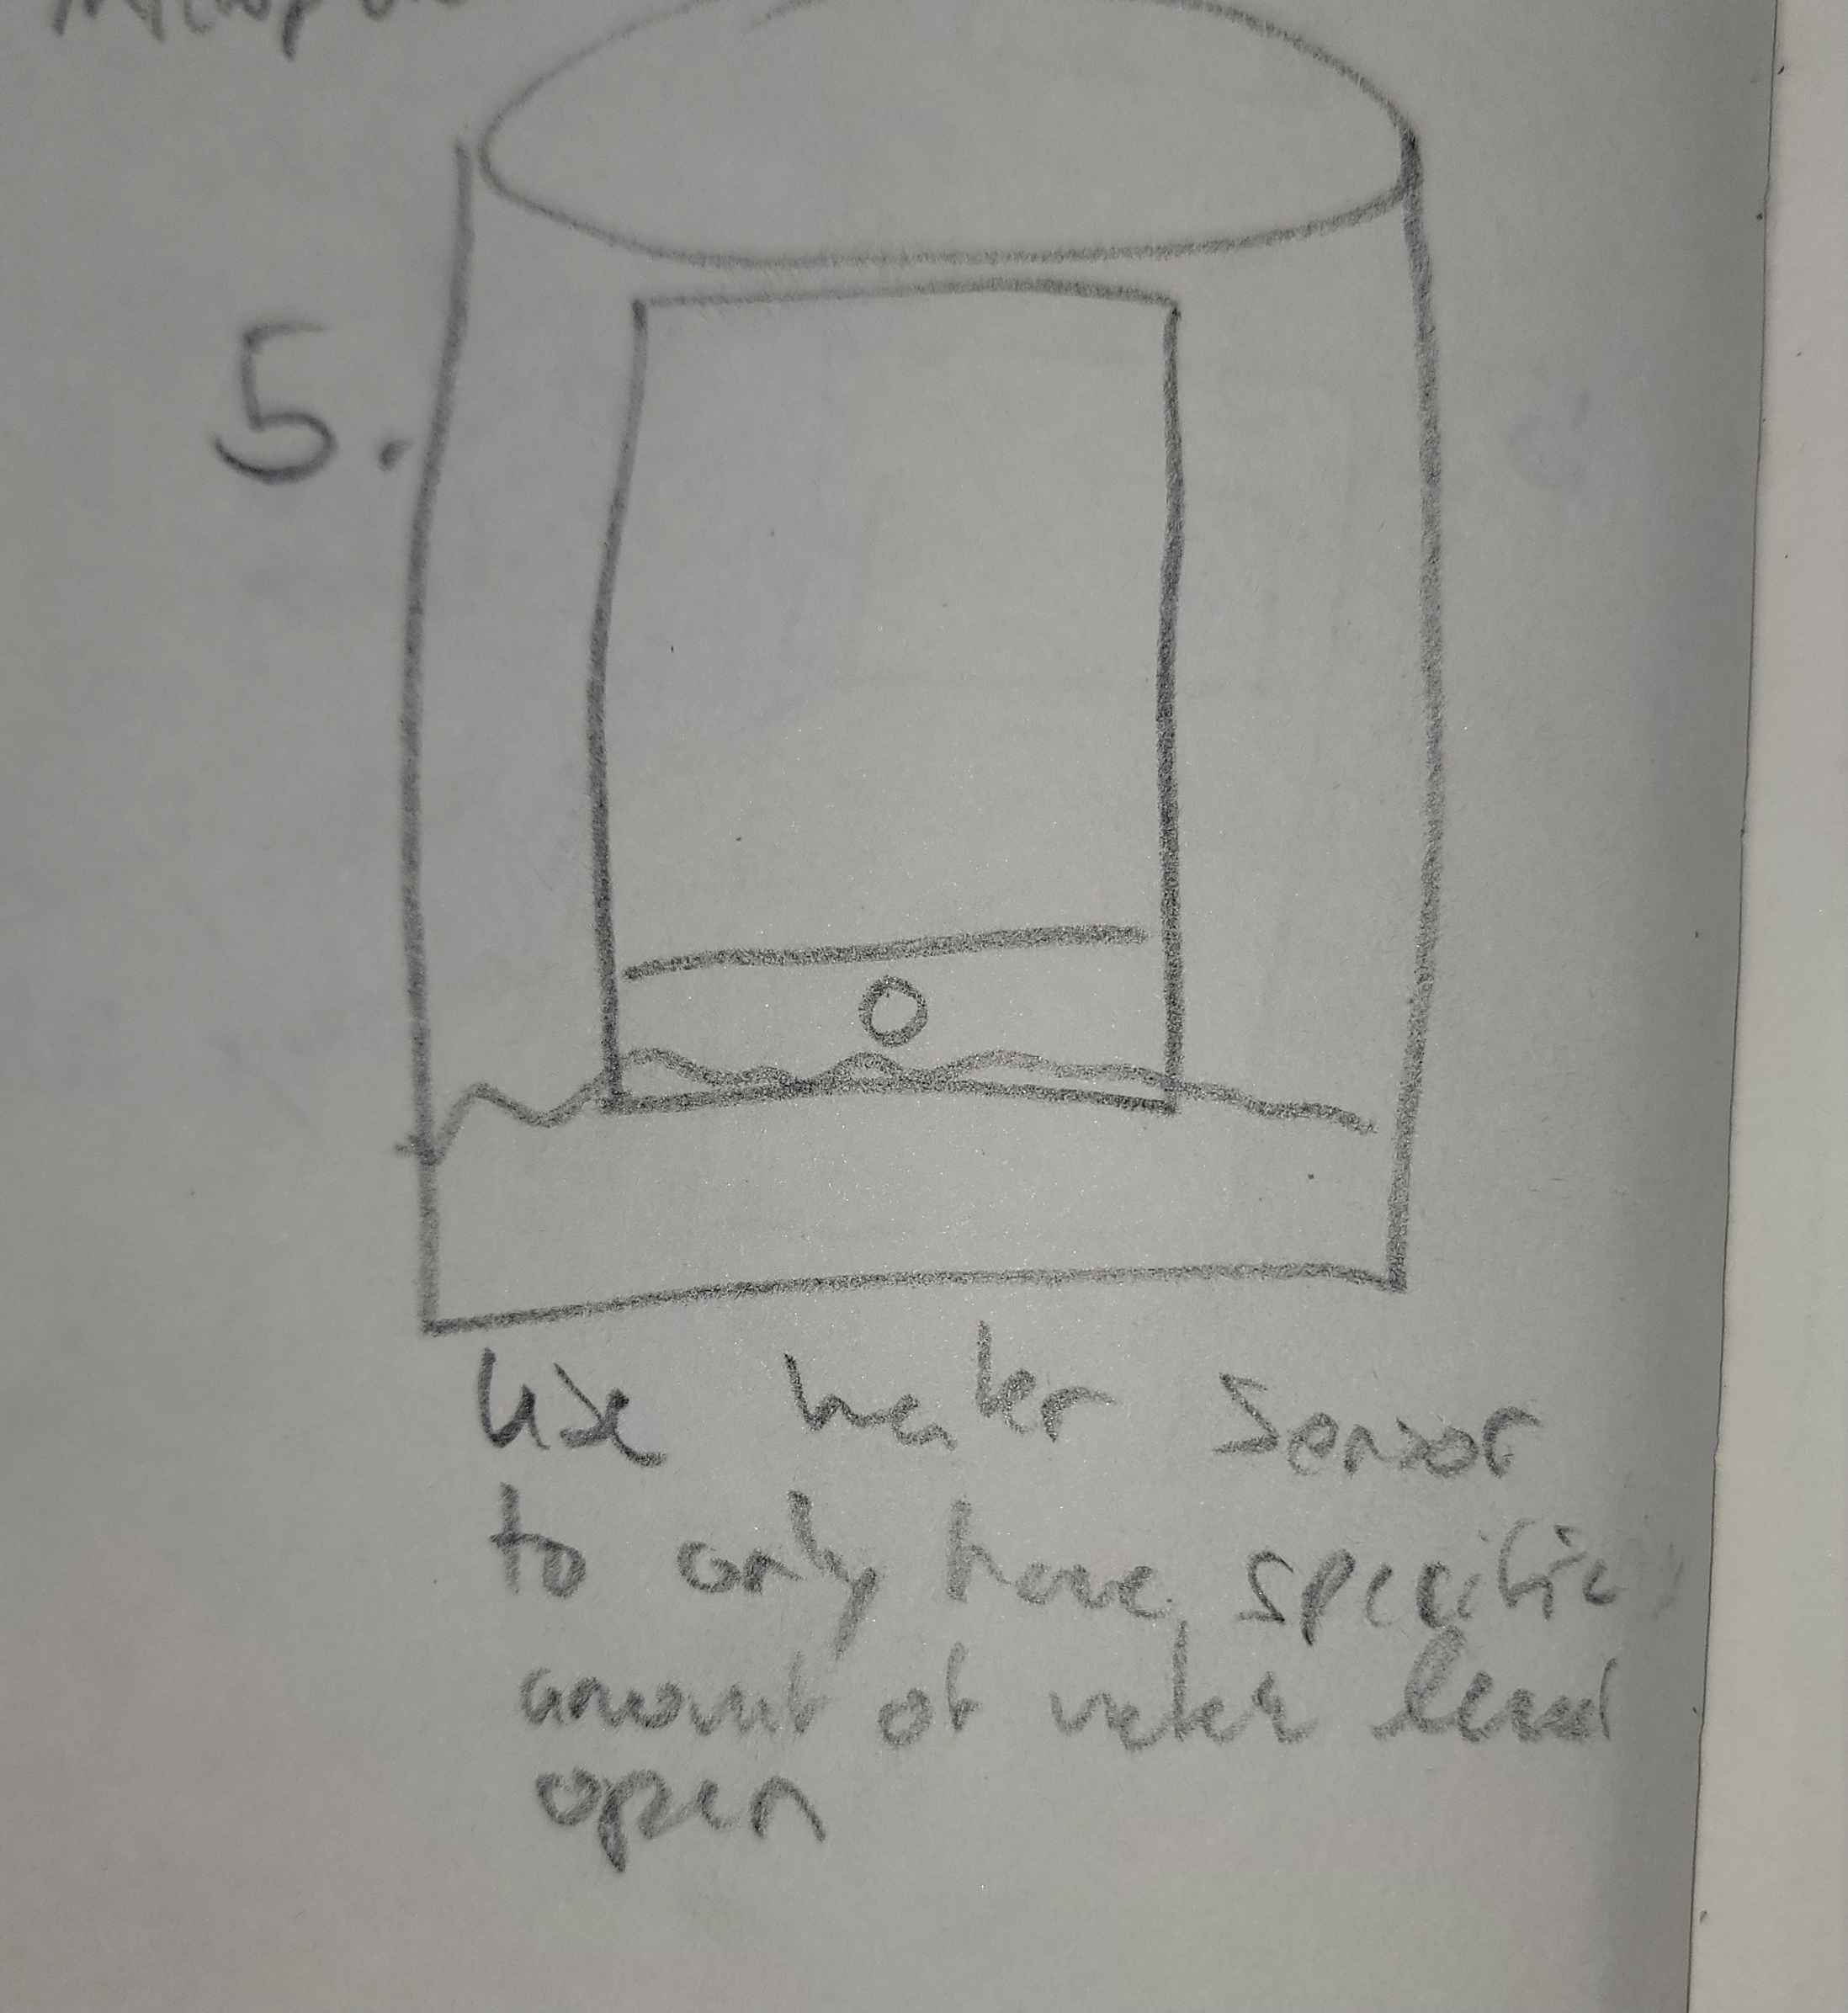 5.
Use water sensor
to only have specific
amount of water level
open